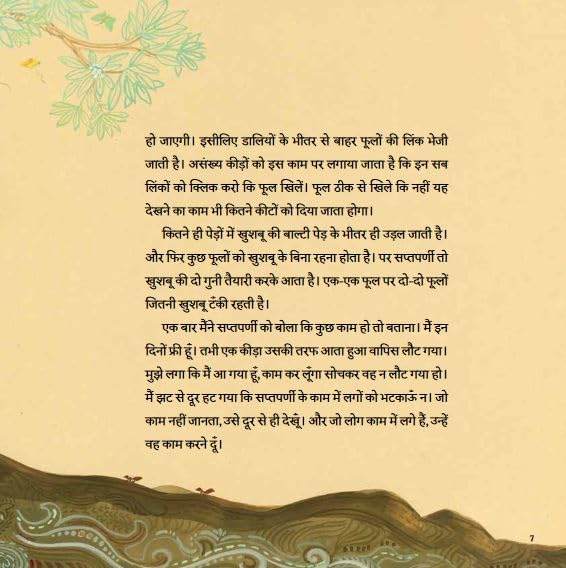 हो जाएगी। इसीलिए डालियों के भीतर से बाहर फूलों की लिंक भेजी
जाती है। असंख्य कीड़ों को इस काम पर लगाया जाता है कि इन सब
लिंकों को क्लिक करो कि फूल खिलें। फूल ठीक से खिले कि नहीं यह
देखने का काम भी कितने कीटों को दिया जाता होगा।
कितने ही पेड़ों में खुशबू की बाल्टी पेड़ के भीतर ही उड़ल जाती है।
और फिर कुछ फूलों को खुशबू के बिना रहना होता है। पर सप्तपर्णी तो
खुशबू की दो गुनी तैयारी करके आता है। एक-एक फूल पर दो-दो फूलों
जितनी खुशबू टँकी रहती है।
एक बार मैंने सप्तपर्णी को बोला कि कुछ काम हो तो बताना। मैं इन
दिनों फ्री हूँ। तभी एक कीड़ा उसकी तरफ आता हुआ वापिस लौट गया।
मुझे लगा कि मैं आ गया हूँ, काम कर लूँगा सोचकर वह न लौट गया हो।
मैं झट से दूर हट गया कि सप्तपर्णी के काम में लगों को भटकाऊँ न। जो
काम नहीं जानता, उसे दूर से ही देखूँ। और जो लोग काम में लगे हैं, उन्हें
वह काम करने दूँ।
7